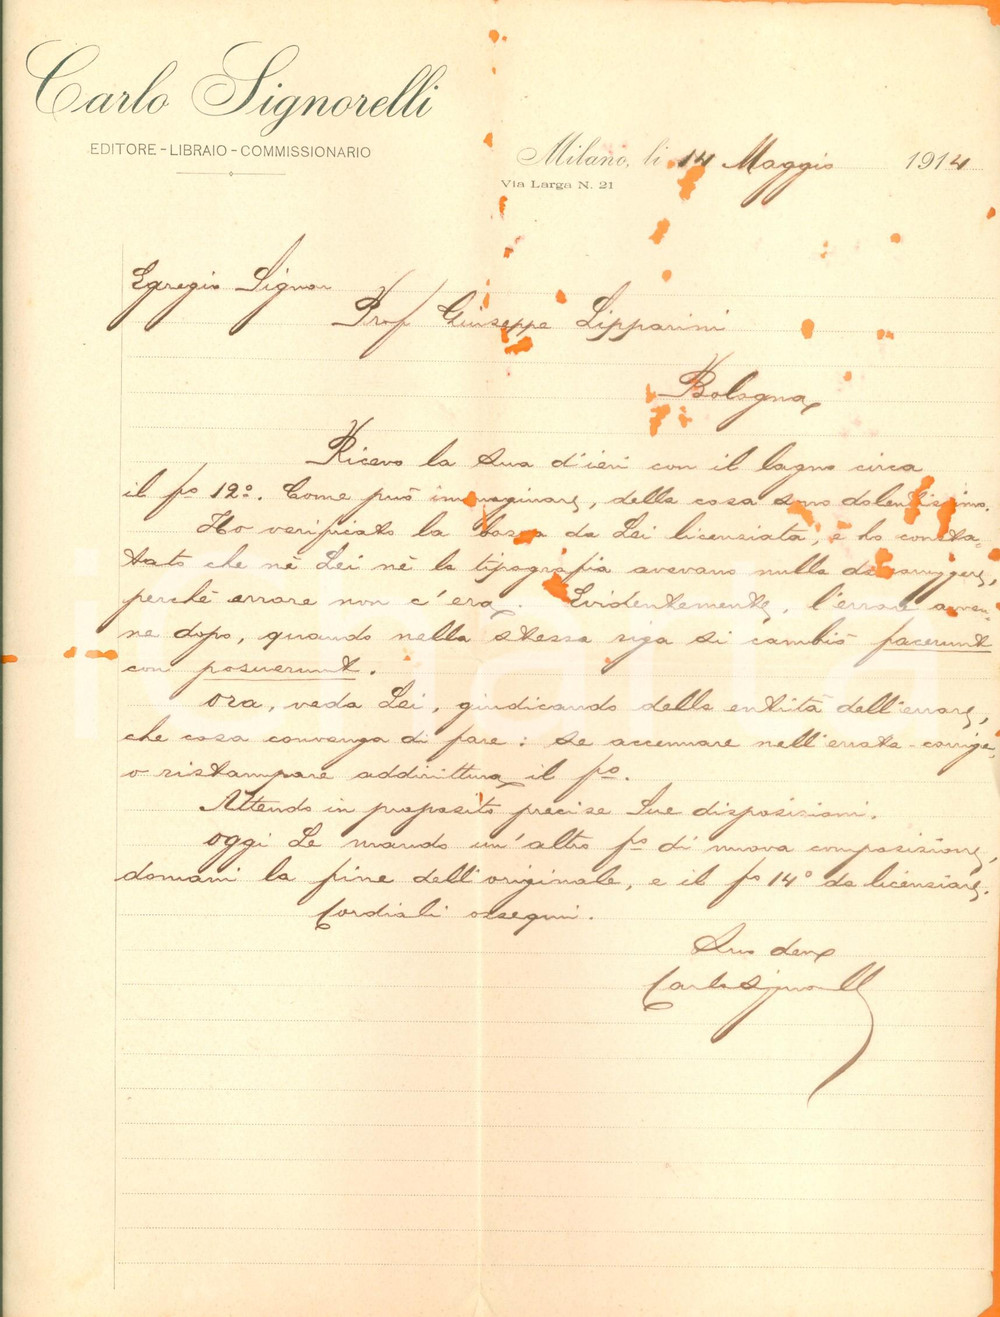 Carlo Signorelli
EDITORE - LIBRAIO - COMMISSIONARIO
Milano, li 14 Maggio 1914
Via Larga N. 21
Egregio Signor
Prof Giuseppe Lipparini
Bologna
Ricevo la Sua d'ieri con il lagno circa
il fo 12º. Come può immaginare, della cosa sono dolentissimo.
Ho verificato la bozza da Lei licenziata, e ho consta-
tato che nè Lei nè la tipografia avevano nulla da correggere,
perchè errore non c'era. Evidentemente, l'errore avven-
ne dopo, quando nella stessa riga si cambiò facerunt
con posuerunt.
Ora, veda Lei, giudicando della entità dell'errore,
che cosa convenga di fare: se accennare nell'errata-corrige,
o ristampare addirittura il fo.
Attendo in proposito precise Sue disposizioni.
Oggi Le mando un'altro fo di nuova composizione,
domani la fine dell'originale, e il fo 14º da licenziare.
Cordiali ossequi.
Suo dev
Carlo Signorelli